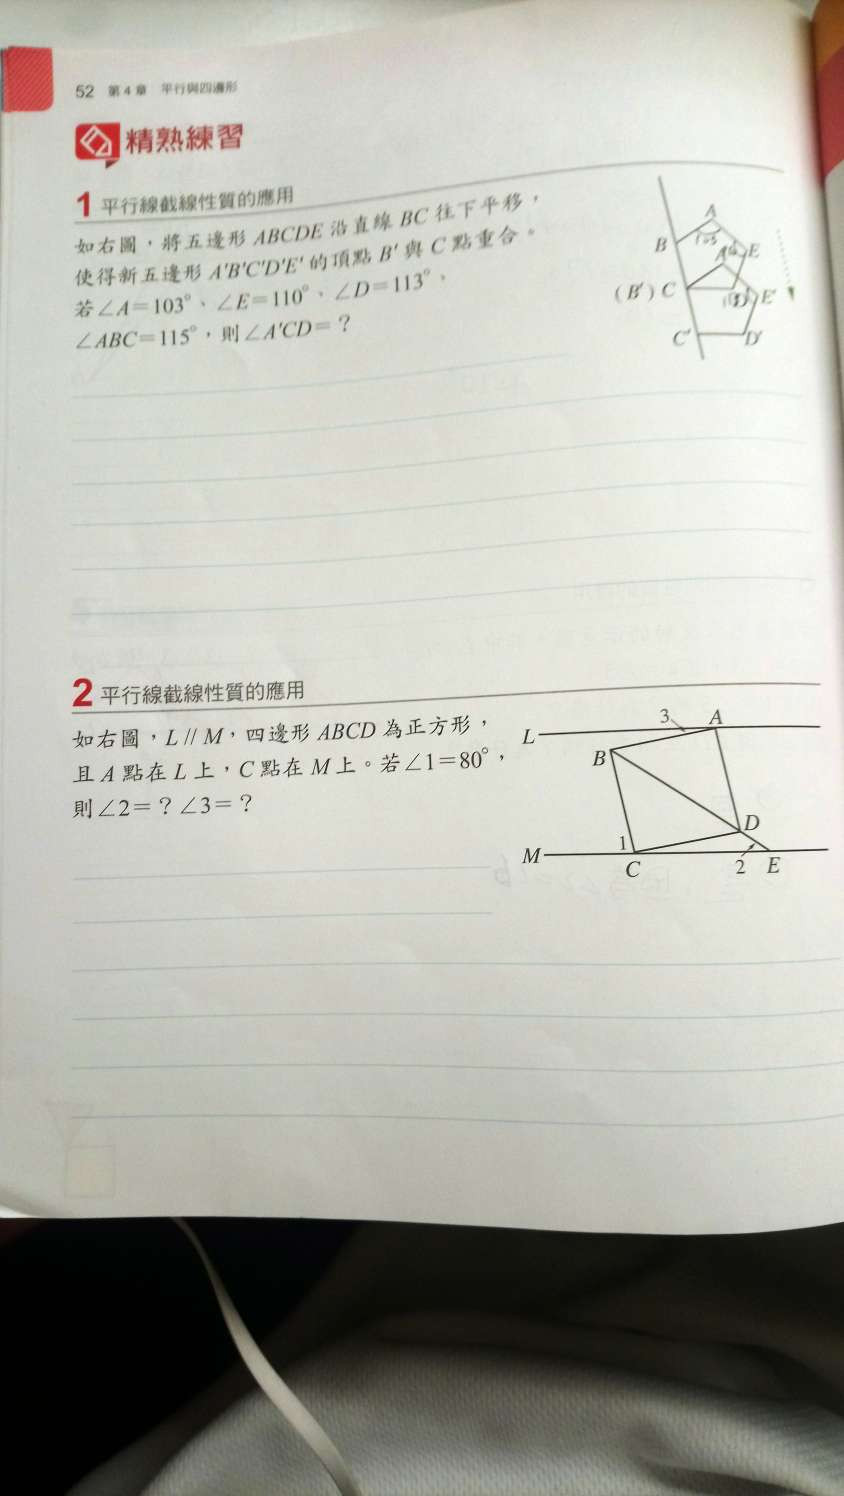 52 第4章 平行與四邊形
精熟練習
1 平行線截線性質的應用
如右圖，將五邊形 ABCDE 沿直線 BC 往下平移，
使得新五邊形 A'B'C'D'E' 的頂點 B' 與 C 點重合。
若∠A=103°、∠E=110°、∠D=113°、
∠ABC=115°，則∠A'CD=？
A
B
E
(B') C
E'
C'
D'
2 平行線截線性質的應用
如右圖，L // M，四邊形 ABCD 為正方形，
且 A 點在 L 上，C 點在 M 上。若∠1=80°，
則∠2=？∠3=？
3 A
L
B
D
1
M
C
2 E